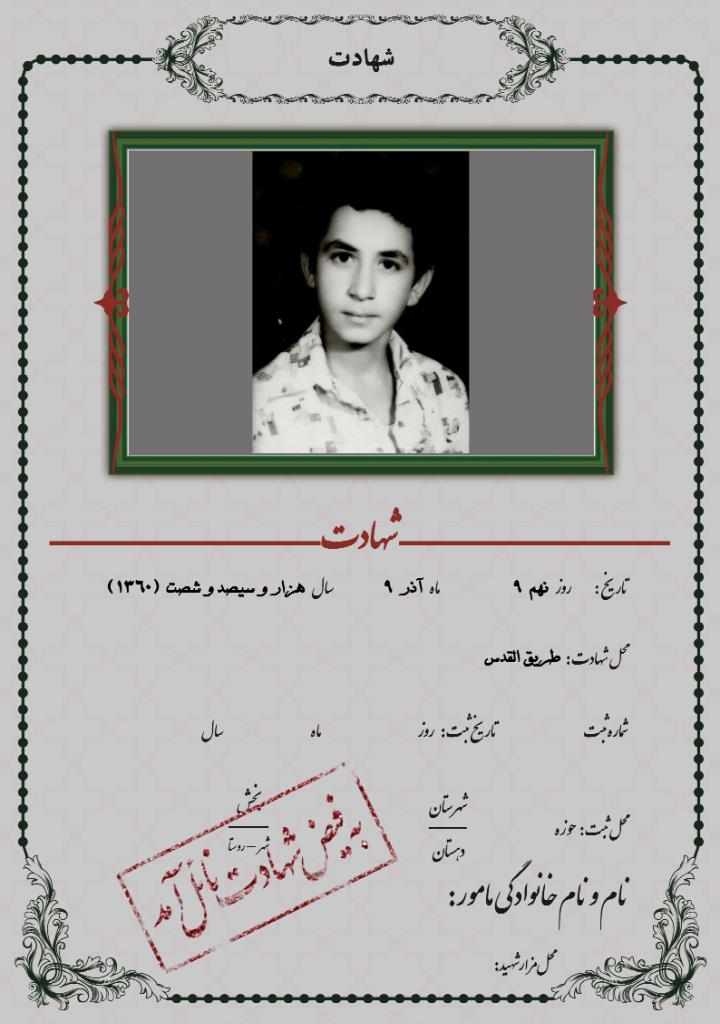 شهادت
شهادت
تاریخ: روز نهم ۹ ماه آذر ۹ سال هزار و سیصد و شصت (۱۳۶۰)
محل شهادت: طریق القدس
شماره ثبت تاریخ ثبت: روز ماه سال
محل ثبت: حوزه شهرستان بخش
دهستان شهر-روستا
به فیض شهادت نائل آمد
نام و نام خانوادگی مامور:
محل مزار شهید: